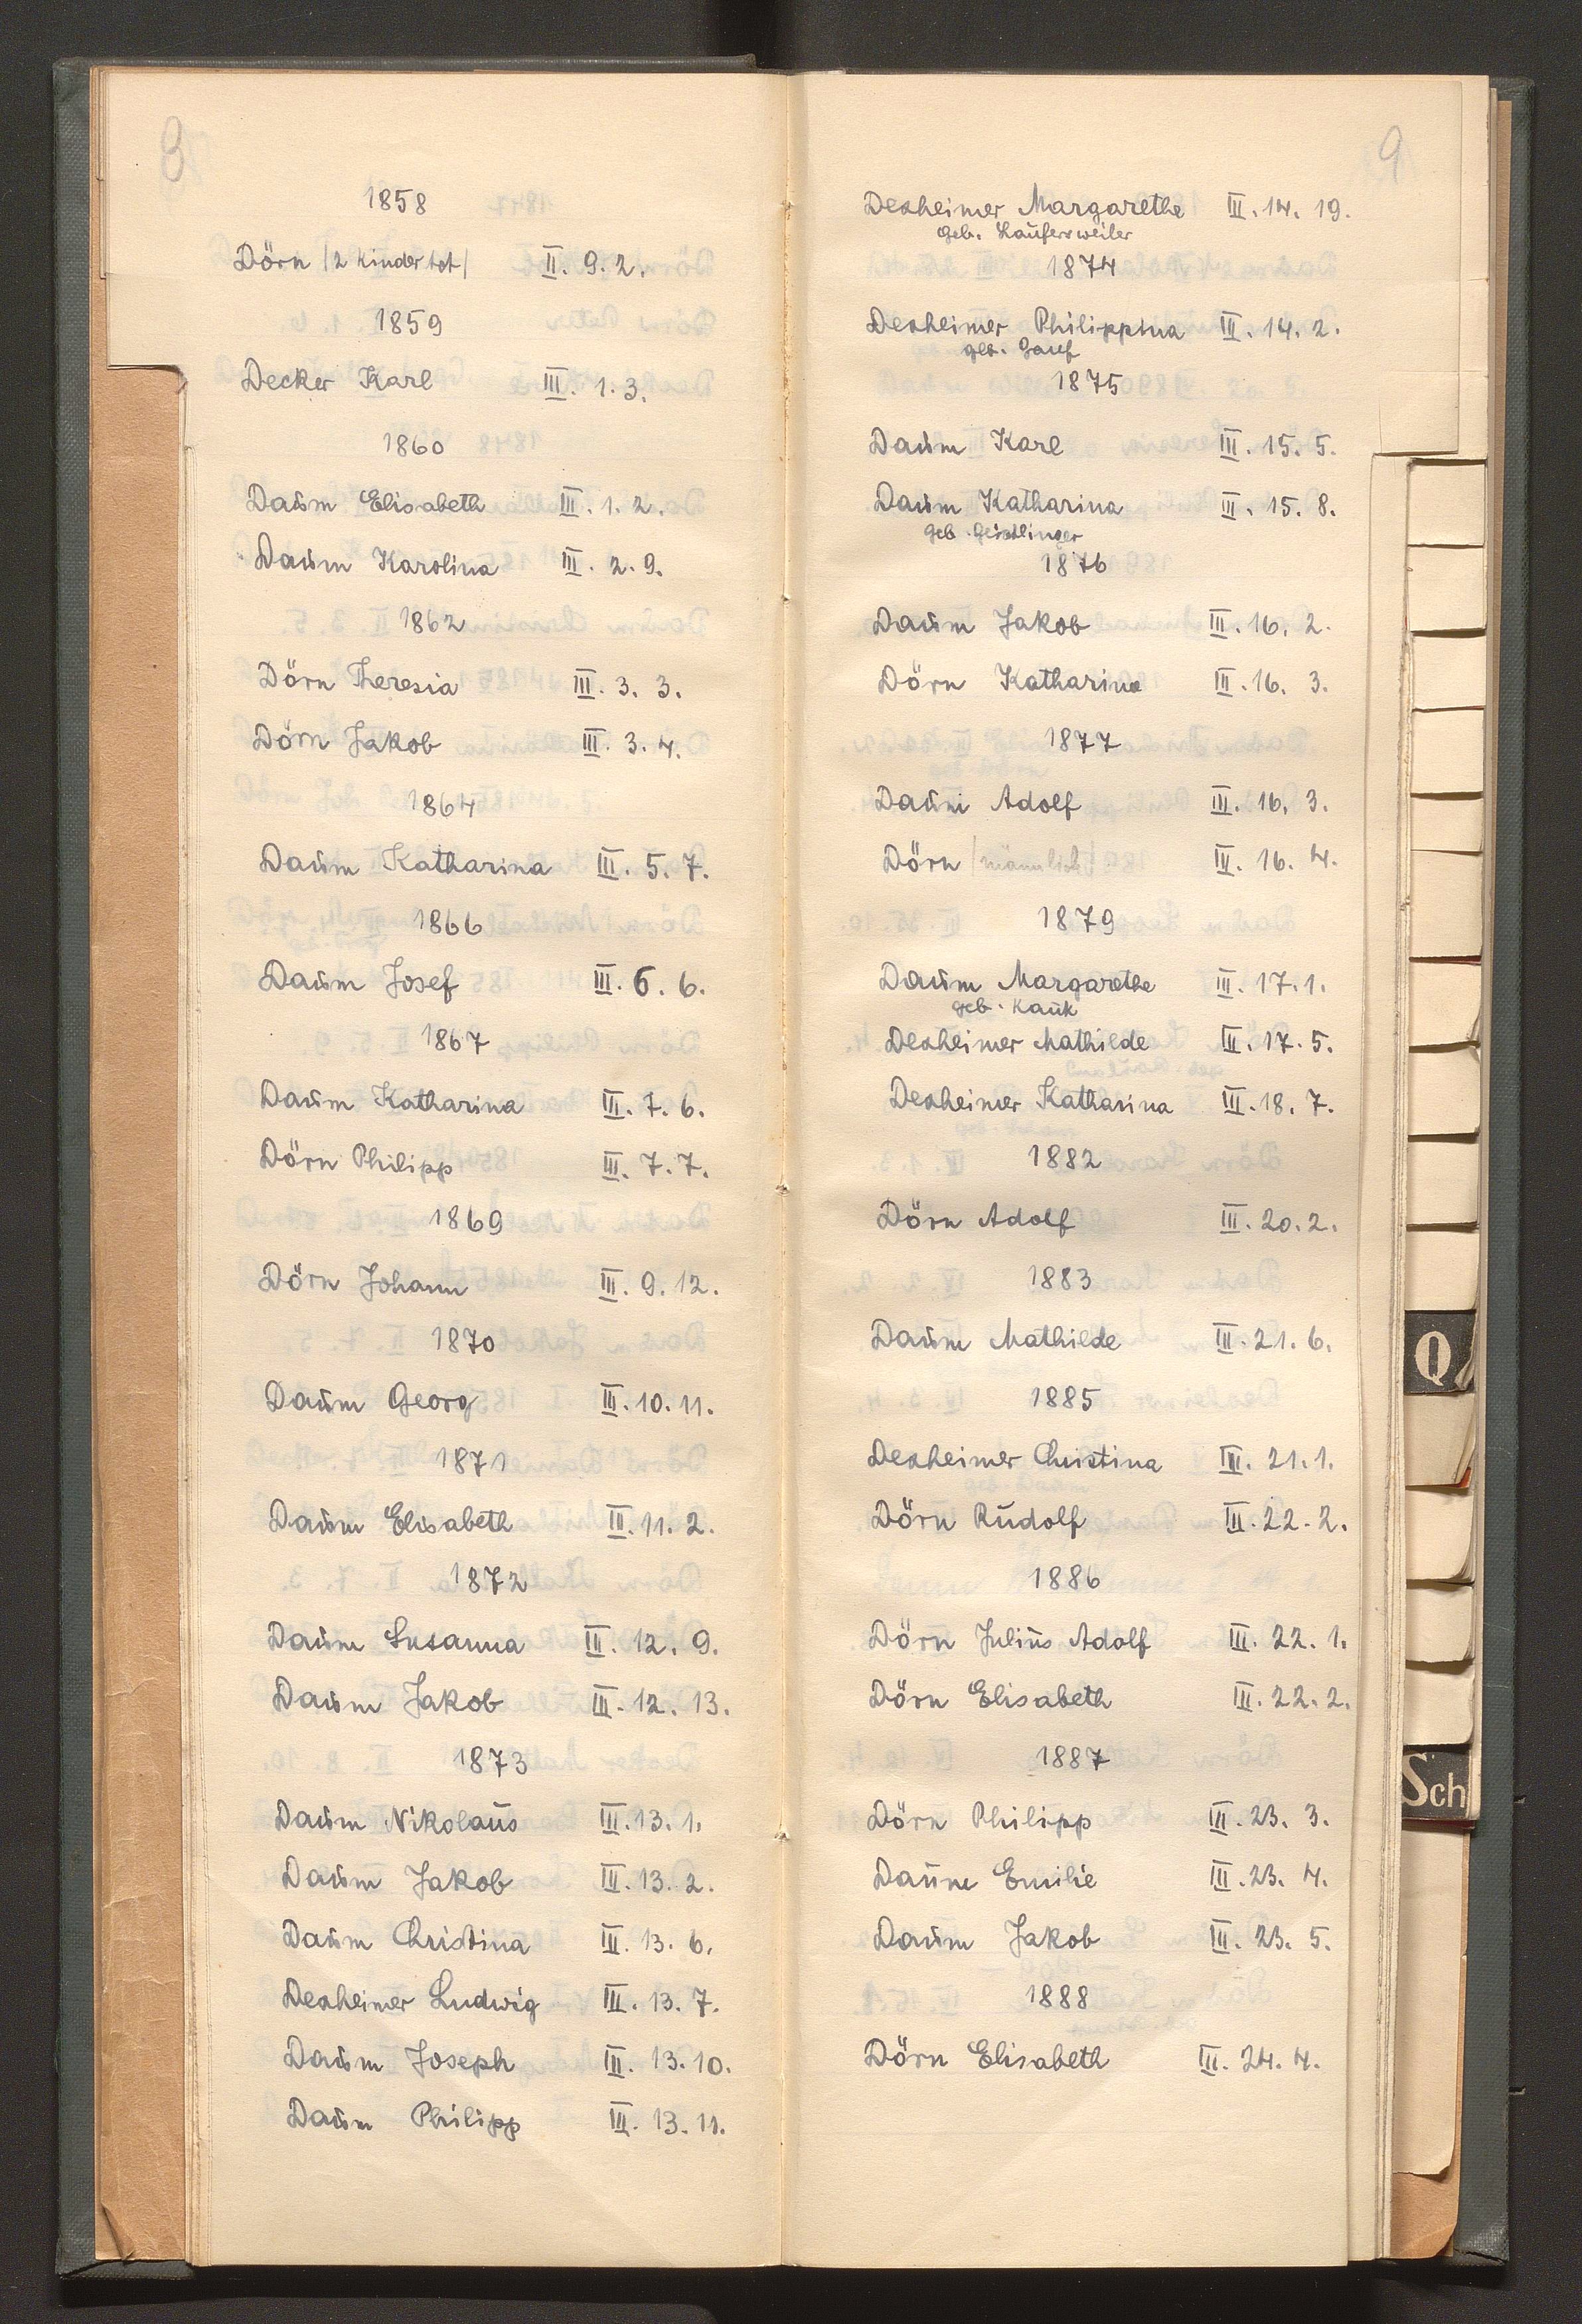 8
1858
Dörn (2 Kinder tot) II. 9. 2.
1859
Decker Karl III. 1. 3.
1860
Daum Elisabeth III. 1. 2.
Daum Karolina III. 2. 9.
1862
Dörn Theresia III. 3. 3.
Dörn Jakob III. 3. 4.
1864
Daum Katharina III. 5. 7.
1866
Daum Josef III. 6. 6.
1867
Daum Katharina III. 7. 6.
Dörn Philipp III. 7. 7.
1869
Dörn Johann III. 9. 12.
1870
Daum Georg III. 10. 11.
1871
Daum Elisabeth III. 11. 2.
1872
Daum Susanna III. 12. 9.
Daum Jakob III. 12. 13.
1873
Daum Nikolaus III. 13. 1.
Daum Jakob III. 13. 2.
Daum Christina III. 13. 6.
Dexheimer Ludwig III. 13. 7.
Daum Joseph III. 13. 10.
Daum Philipp III. 13. 11.
9
Dexheimer Margarethe III. 14. 19.
geb. Laufersweiler
1874
Dexheimer Philippina III. 14. 2.
geb.
1875
Daum Karl III. 15. 5.
Daum Katharina III. 15. 8.
geb.
1876
Daum Jakob III. 16. 2.
Dörn Katharina III. 16. 3.
1877
Daum Adolf III. 16. 3.
Dörn (männlich) III. 16. 4.
1879
Daum Margarethe III. 17. 1.
geb. Kauk
Dexheimer Mathilde III. 17. 5.
Dexheimer Katharina III. 18. 7.
1882
Dörn Adolf III. 20. 2.
1883
Daum Mathilde III. 21. 6.
1885
Dexheimer Christina III. 21. 1.
Dörn Rudolf III. 22. 2.
1886
Dörn Julius Adolf III. 22. 1.
Dörn Elisabeth III. 22. 2.
1887
Dörn Philipp III. 23. 3.
Daum Emilie III. 23. 4.
Daum Jakob III. 23. 5.
1888
Dörn Elisabeth III. 24. 4.
Q
Sch